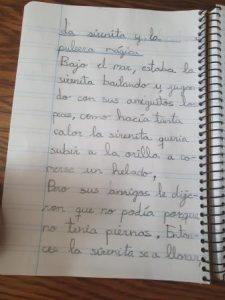 La sirenita y la
pulsera mágica
Bajo el mar, estaba la
sirenita bailando y jugan
do con sus amiguitos los
peces, como hacía tanta
calor la sirenita quería
subir a la orilla a co
merse un helado,
Pero sus amigos le dije
ron que no podía porque
no tenía piernas. Enton
ces la sirenita se a llorar